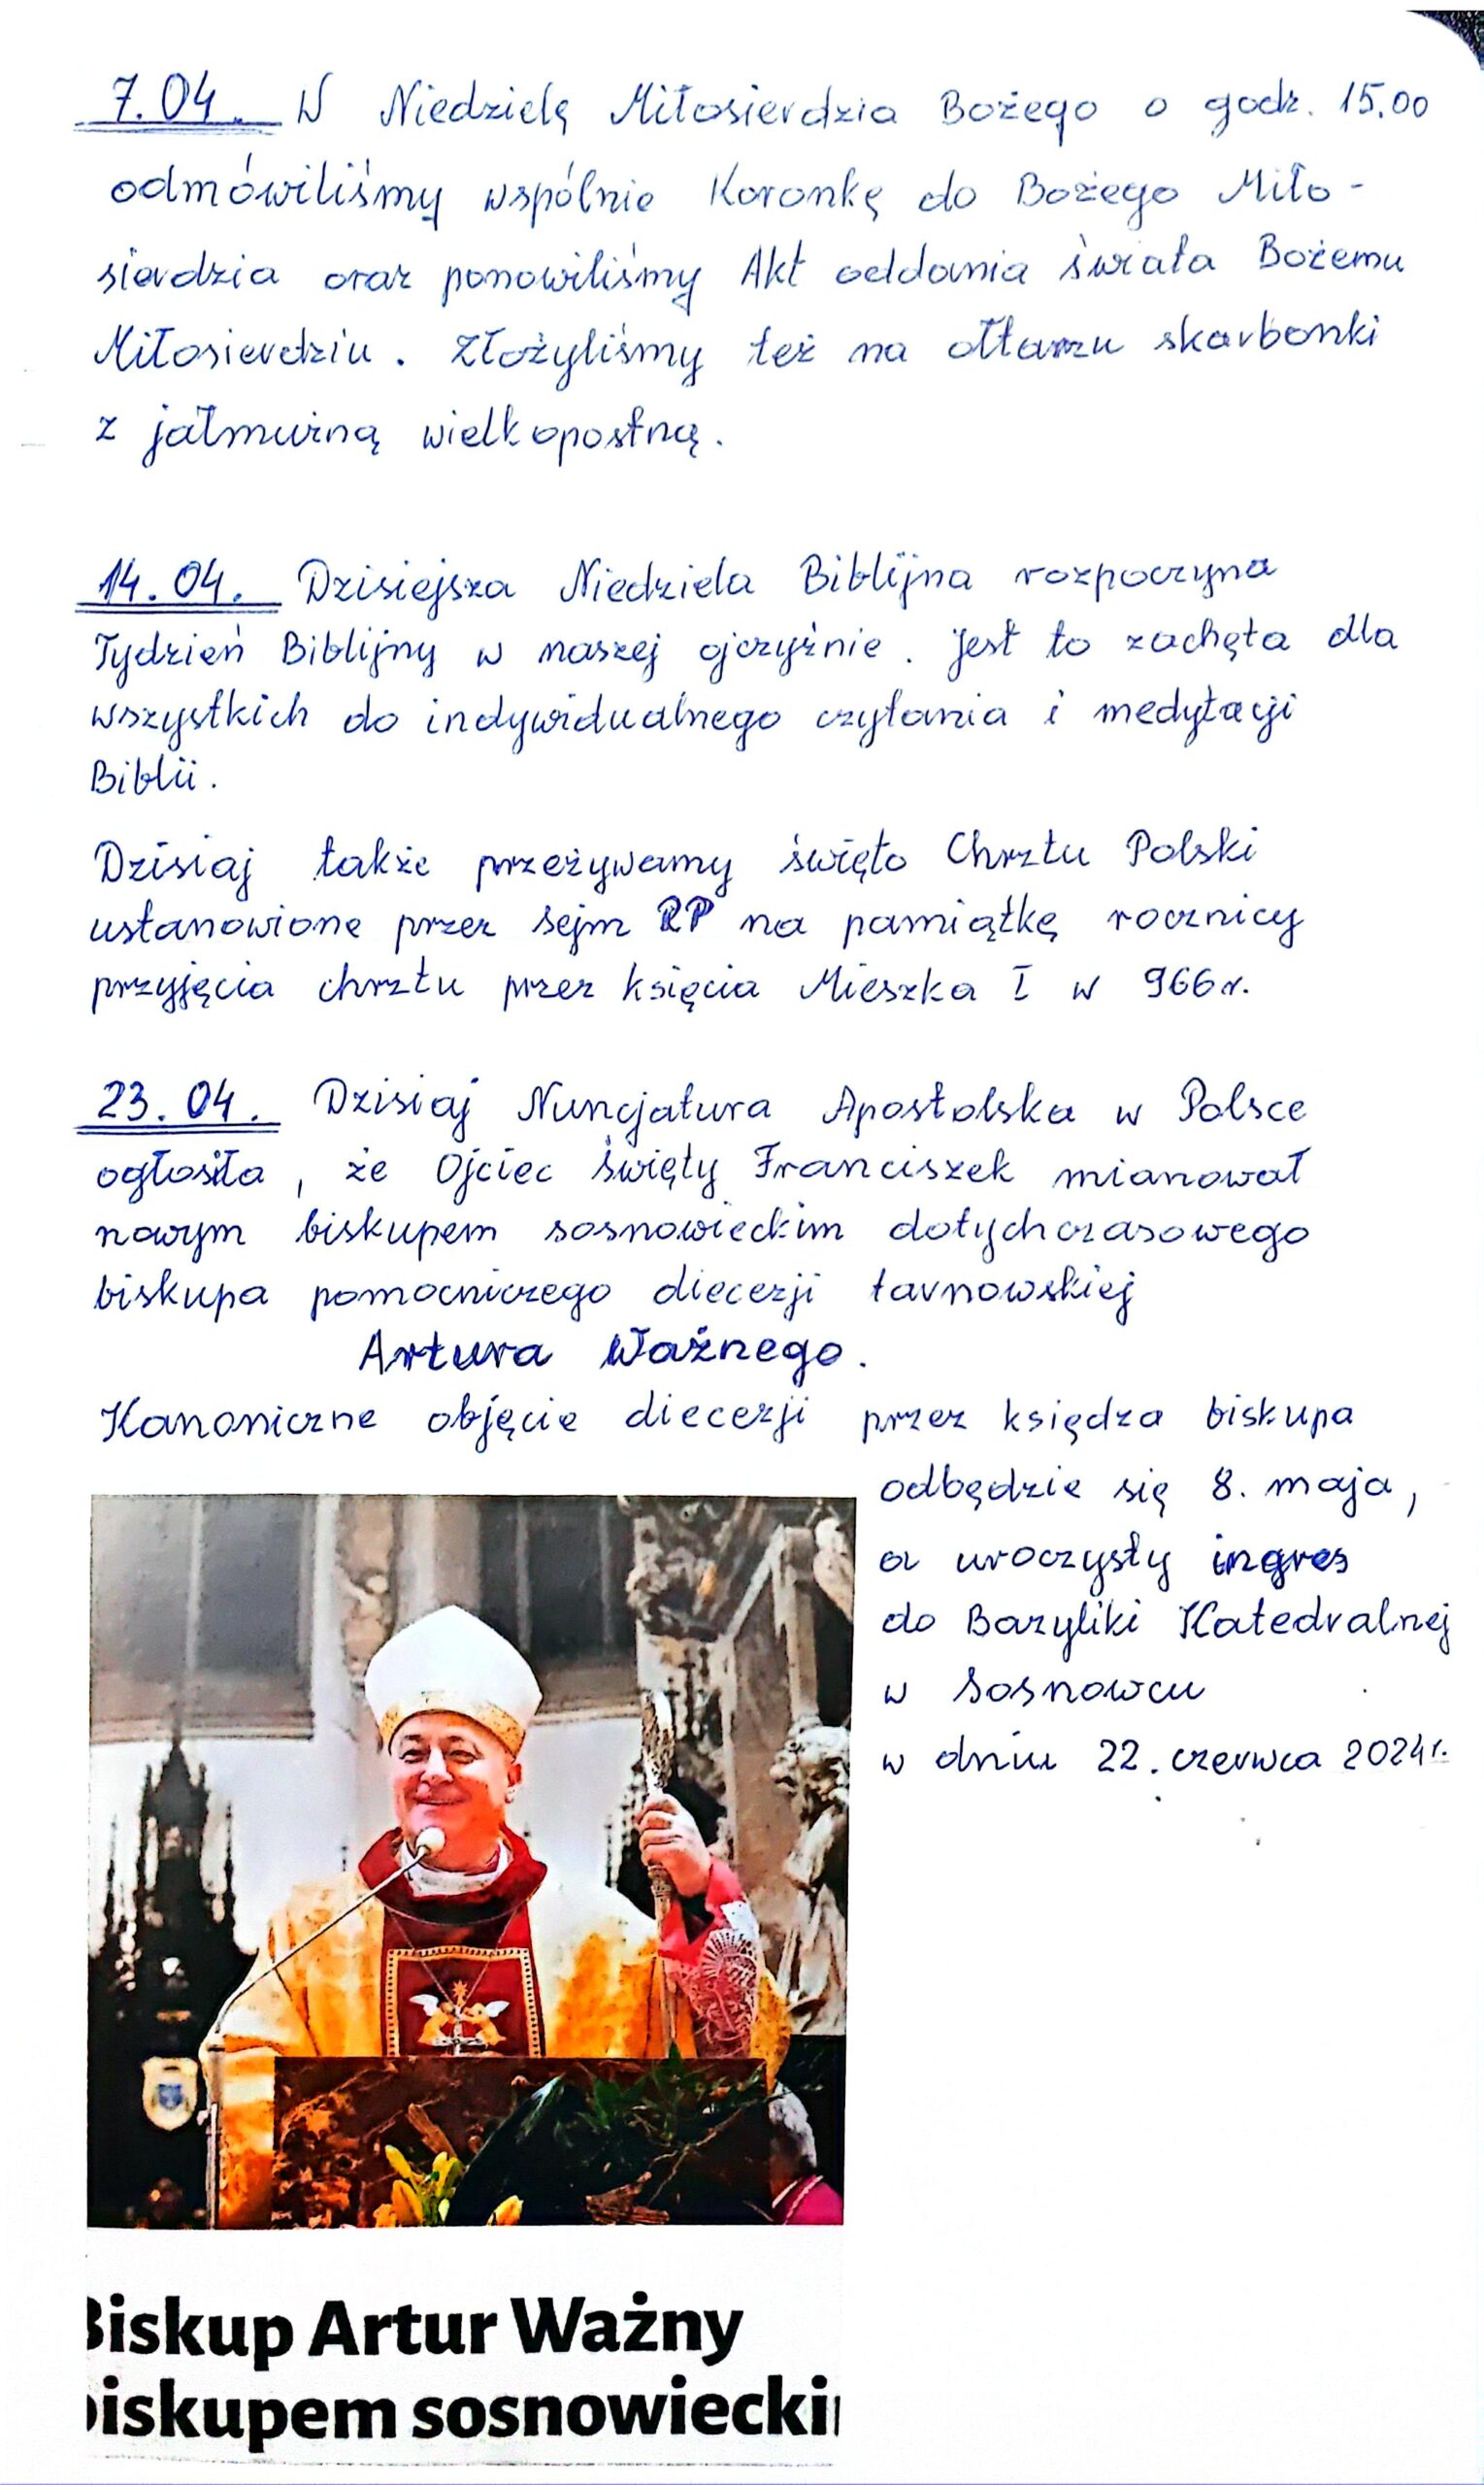 7.04. W Niedzielę Miłosierdzia Bożego o godz. 15.00
odmówiliśmy wspólnie Koronkę do Bożego Miło-
sierdzia oraz ponowiliśmy Akt oddania świata Bożemu
Miłosierdziu. Złożyliśmy też na ołtarzu skarbonki
z jałmużną wielkopostną.
14.04. Dzisiejsza Niedziela Biblijna rozpoczyna
Tydzień Biblijny w naszej ojczyźnie. Jest to zachęta dla
wszystkich do indywidualnego czytania i medytacji
Biblii.
Dzisiaj także przeżywamy święto Chrztu Polski
ustanowione przez Sejm RP na pamiątkę rocznicy
przyjęcia chrztu przez księcia Mieszka I w 966r.
23.04. Dzisiaj Nuncjatura Apostolska w Polsce
ogłosiła, że Ojciec święty Franciszek mianował
nowym biskupem sosnowieckim dotychczasowego
biskupa pomocniczego diecezji tarnowskiej
Artura Ważnego.
Kanoniczne objęcie diecezji przez księdza biskupa
odbędzie się 8. maja,
a uroczysty ingres
do Bazyliki Katedralnej
w Sosnowcu
w dniu 22. czerwca 2024r.
Biskup Artur Ważny
biskupem sosnowiecki